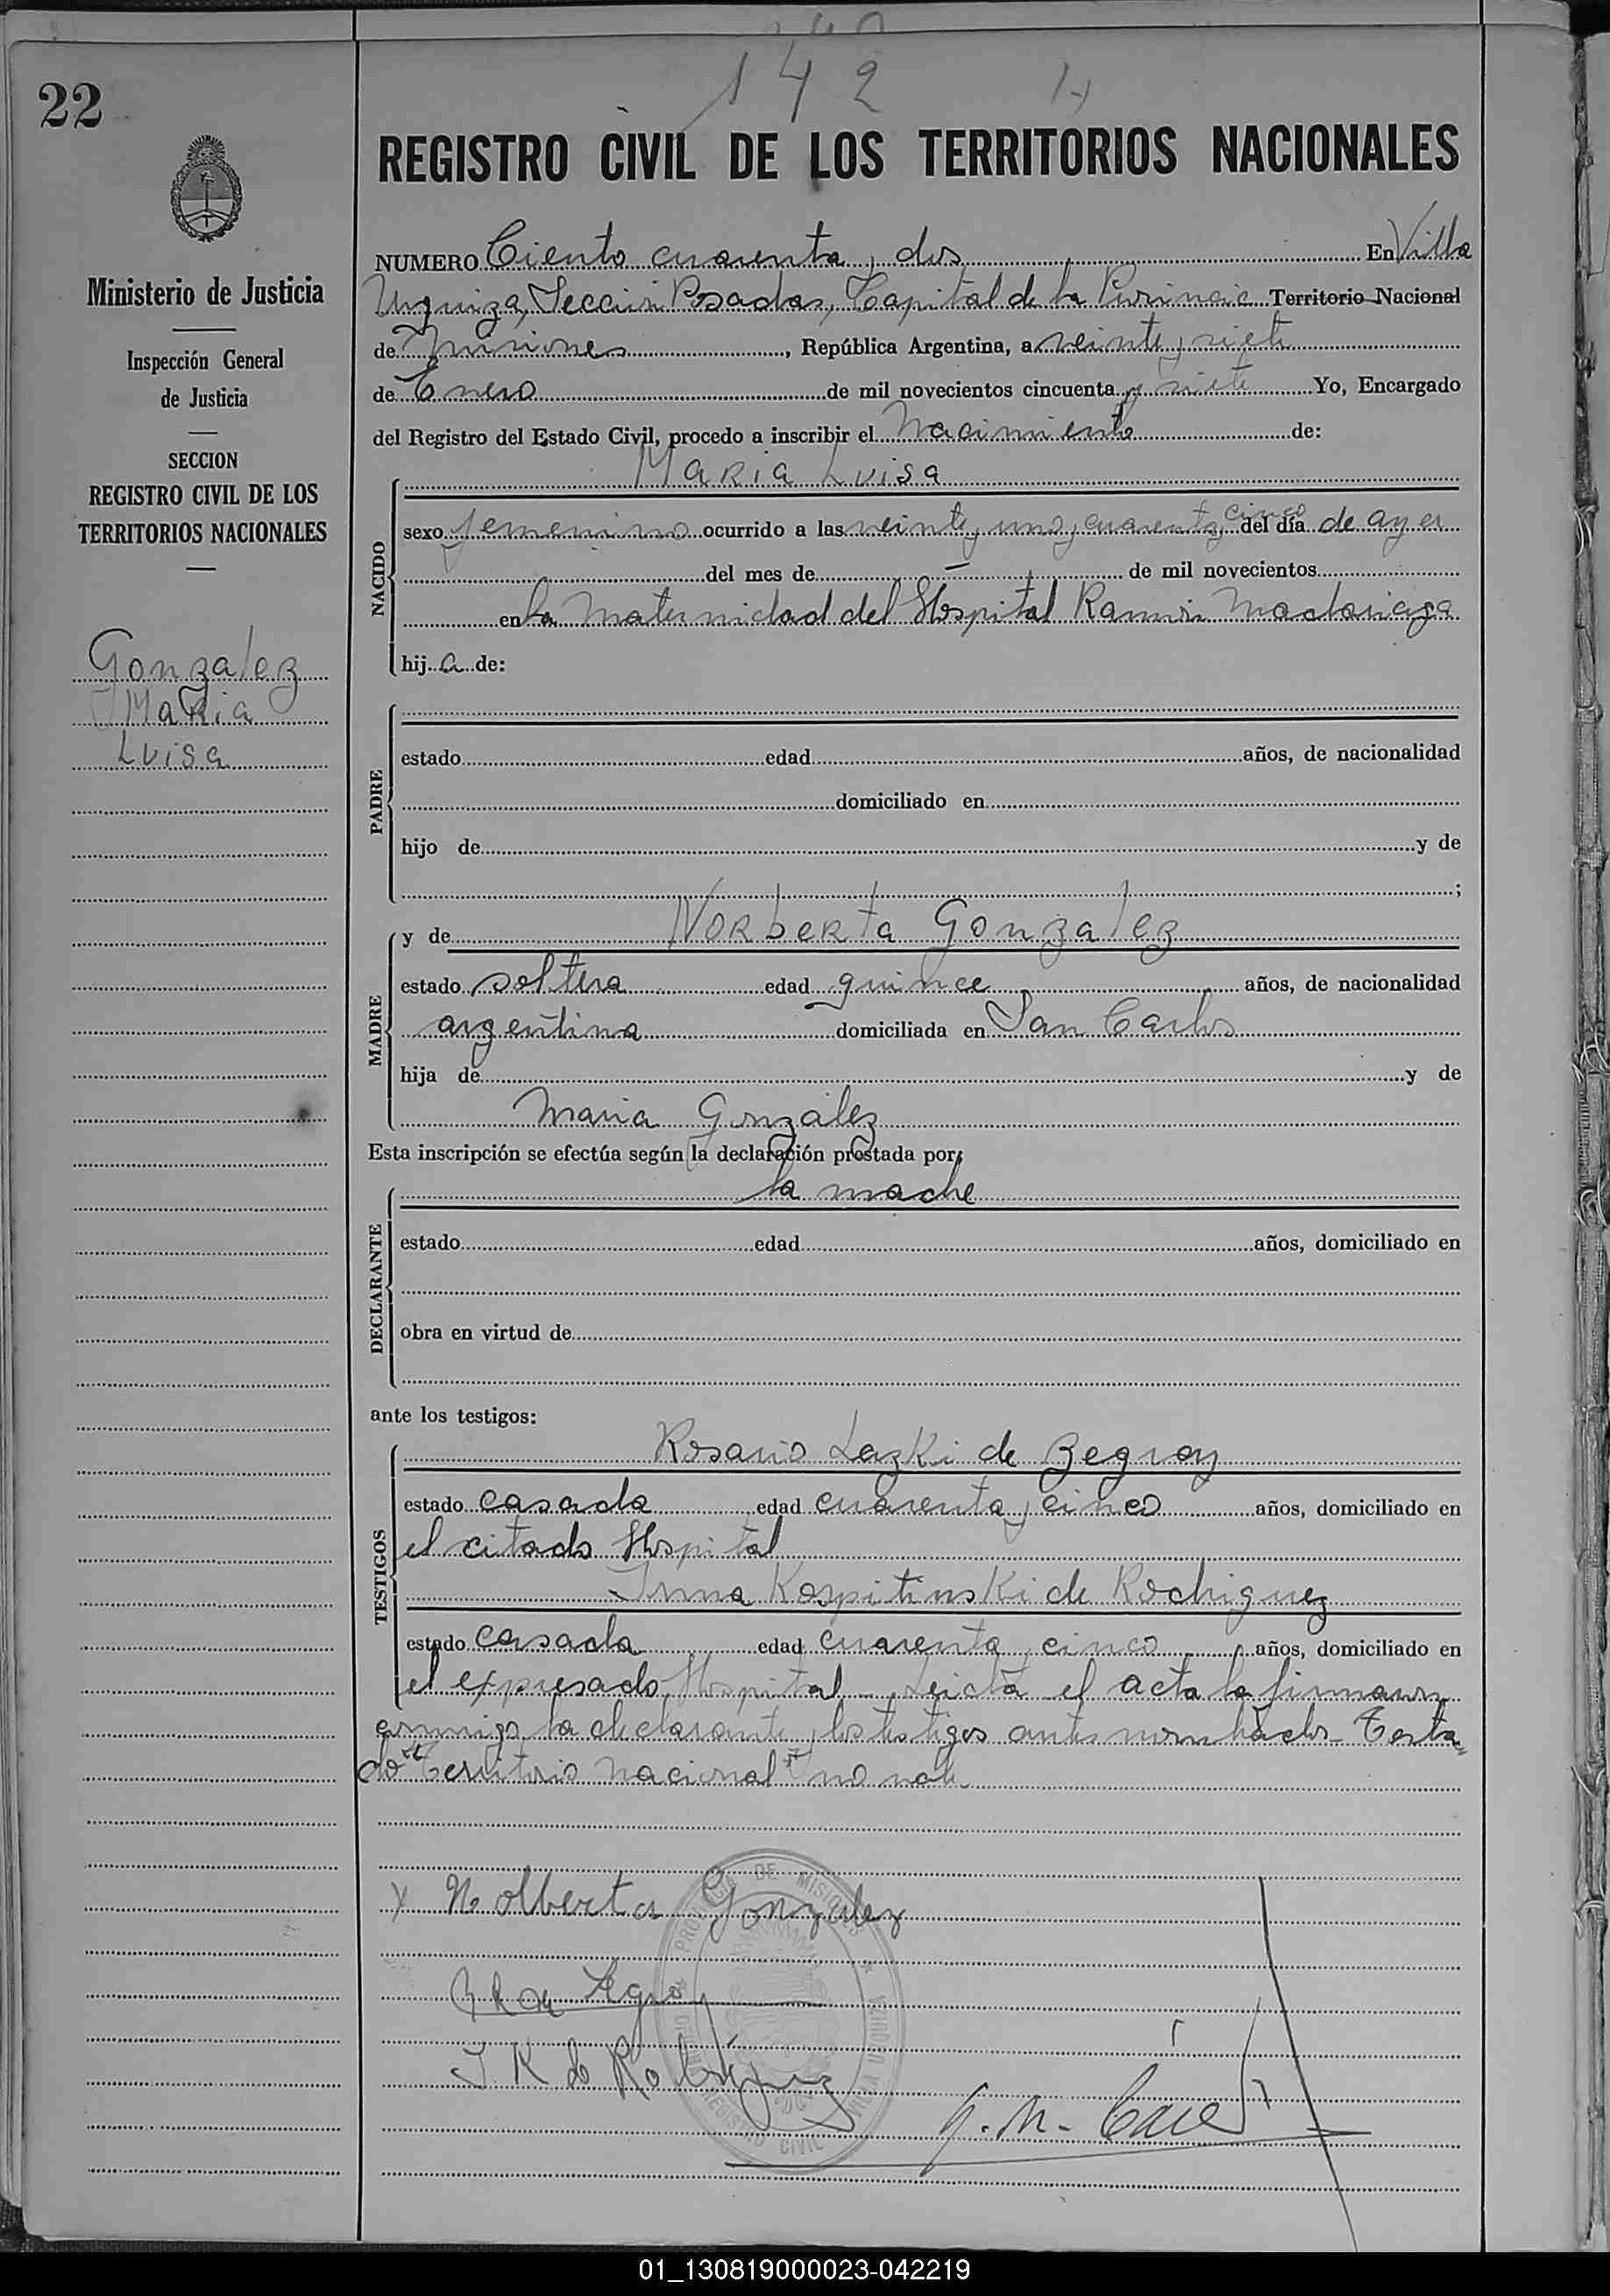 142
22
Ministerio de Justicia
Inspección General
de Justicia
SECCION
REGISTRO CIVIL DE LOS
TERRITORIOS NACIONALES
Gonzalez
Maria
Luisa
REGISTRO CIVIL DE LOS TERRITORIOS NACIONALES
NUMERO Ciento cuarenta y dos En Villa
Urquiza, Sección Posadas, Capital de la Provincia Territorio Nacional
de Misiones, República Argentina, a veinte y siete
de Enero de mil novecientos cincuenta y siete Yo, Encargado
del Registro del Estado Civil, procedo a inscribir el Nacimiento de:
NACIDO
Maria Luisa
sexo femenino ocurrido a las veinte y uno y cuarenta y cinco del día de ayer
del mes de — de mil novecientos
en la Maternidad del Hospital Ramón Madariaga
hij a de:
PADRE
estado edad años, de nacionalidad
domiciliado en
hijo de y de
;
MADRE
y de Norberta Gonzalez
estado soltera edad quince años, de nacionalidad
argentina domiciliada en San Carlos
hija de y de
Maria González
Esta inscripción se efectúa según la declaración prestada por:
DECLARANTE
la madre
estado edad años, domiciliado en
obra en virtud de
ante los testigos:
TESTIGOS
Rosario Lazki de
estado casada edad cuarenta y cinco años, domiciliado en
el citado Hospital
Irma Kospitinski de Rodriguez
estado casada edad cuarenta y cinco años, domiciliado en
el expresado Hospital Leida el acta la firmaron
conmigo la declarante y los testigos antes nombrados - Testa
do "Territorio Nacional" no vale
x Nolberta Gonzalez
I. K de Rodriguez
PROVINCIA DE MISIONES
REGISTRO CIVIL
VILLA URQUIZA
01_130819000023-042219